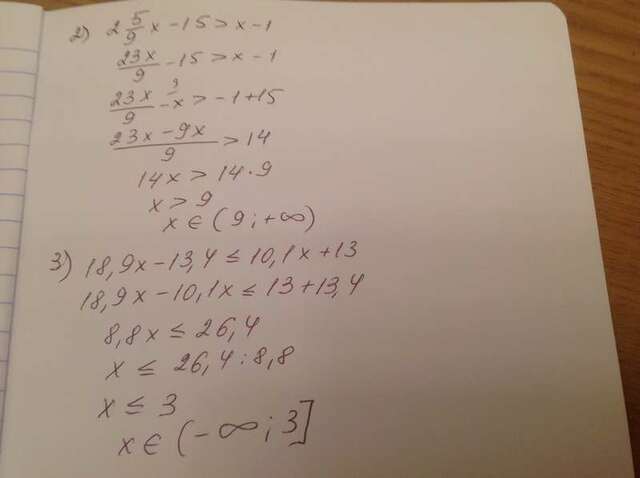 2) 2 5/9 x - 15 > x - 1
23x/9 - 15 > x - 1
23x/9 - x > -1 + 15
9
(23x - 9x)/9 > 14
14x > 14 · 9
x > 9
x ∈ (9; +∞)
3) 18,9x - 13,4 ≤ 10,1x + 13
18,9x - 10,1x ≤ 13 + 13,4
8,8x ≤ 26,4
x ≤ 26,4 : 8,8
x ≤ 3
x ∈ (-∞; 3]